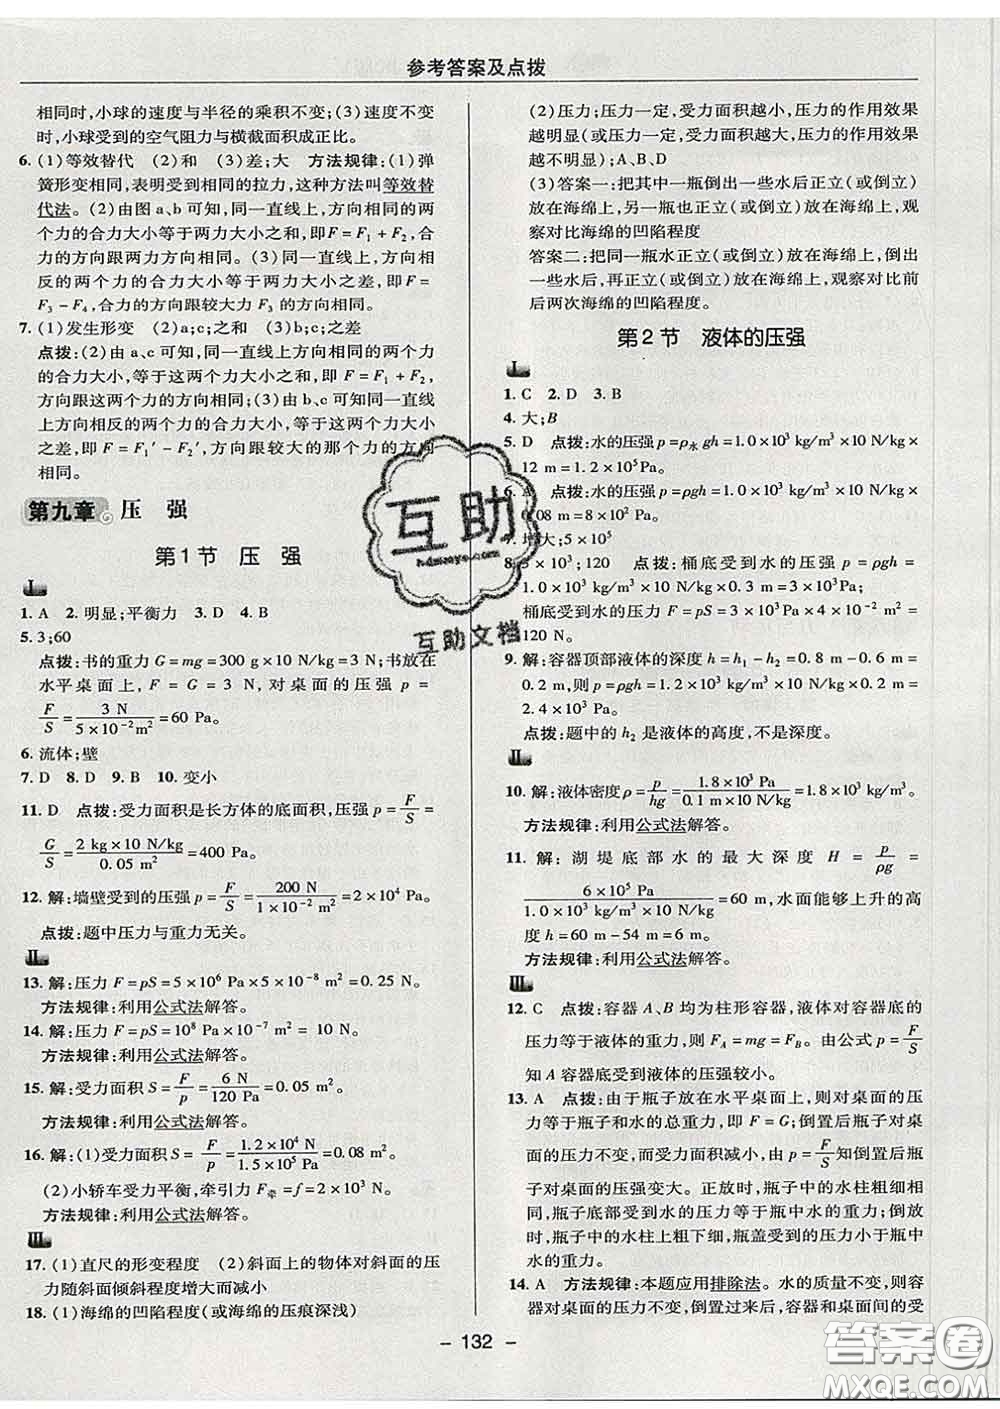 参考答案及点拨
相同时,小球的速度与半径的乘积不变;(3)速度不变
时,小球受到的空气阻力与横截面积成正比。
6. (1)等效替代 (2)和 (3)差;大 方法规律:(1)弹
簧形变相同,表明受到相同的拉力,这种方法叫等效替
代法。(2)由图 a、b 可知,同一直线上,方向相同的两
个力的合力大小等于两力大小之和,即F=F₁+F₂,合
力的方向跟两力方向相同。(3)同一直线上,方向相反
的两个力的合力大小等于两力大小之差,即 F=
F₃-F₄,合力的方向跟较大力 F₃ 的方向相同。
7. (1)发生形变 (2)a;c;之和 (3)b;c;之差
点拨:(2)由 a、c 可知,同一直线上方向相同的两个力
的合力大小,等于这两个力大小之和,即 F=F₁+F₂,
方向跟这两个力的方向相同。(3)由 b、c 可知同一直线
上方向相反的两个力的合力大小,等于这两个力大小
之差,即 F=F₁′-F₂′,方向跟较大的那个力的方向
相同。
第九章 压 强
第1节 压 强
Ⅰ
1. A 2. 明显;平衡力 3. D 4. B
5. 3;60
点拨:书的重力 G=mg=300 g×10 N/kg=3 N,书放在
水平桌面上,F=G=3 N,对桌面的压强 p=
F/S=3 N/(5×10⁻² m²)=60 Pa。
6. 流体;壁
7. D 8. D 9. B 10. 变小
11. D 点拨:受力面积是长方体的底面积,压强 p=F/S=
G/S=(2 kg×10 N/kg)/(0.05 m²)=400 Pa。
12. 解:墙壁受到的压强 p=F/S=200 N/(1×10⁻² m²)=2×10⁴ Pa。
点拨:题中压力与重力无关。
Ⅱ
13. 解:压力 F=pS=5×10⁶ Pa×5×10⁻⁸ m²=0.25 N。
方法规律:利用公式法解答。
14. 解:压力 F=pS=10⁸ Pa×10⁻⁷ m²=10 N。
方法规律:利用公式法解答。
15. 解:受力面积 S=F/p=6 N/120 Pa=0.05 m²。
方法规律:利用公式法解答。
16. 解:(1)受力面积 S=F/p=(1.2×10⁴ N)/(1.5×10⁵ Pa)=0.08 m²。
(2)小轿车受力平衡,牵引力 F牵=f=2×10³ N。
方法规律:利用公式法解答。
Ⅲ
17. (1)直尺的形变程度 (2)斜面上的物体对斜面的压
力随斜面倾斜程度增大而减小
18. (1)海绵的凹陷程度(或海绵的压痕深浅)
(2)压力;压力一定,受力面积越小,压力的作用效果
越明显(或压力一定,受力面积越大,压力的作用效果
越不明显);A、B、D
(3)答案一:把其中一瓶倒出一些水后正立(或倒立)
放在海绵上,另一瓶也正立(或倒立)放在海绵上,观
察对比海绵的凹陷程度
答案二:把同一瓶水正立(或倒立)放在海绵上,倒出
一些水后,再正立(或倒立)放在海绵上,观察比较前
后两次海绵的凹陷程度。
第2节 液体的压强
Ⅰ
1. C 2. D 3. B
4. 大;B
5. D 点拨:水的压强 p=ρ水gh=1.0×10³ kg/m³×10 N/kg×
12 m=1.2×10⁵ Pa。
6. A 点拨:水的压强 p=ρgh=1.0×10³ kg/m³×10 N/kg×
0.08 m=8×10² Pa。
7. 增大;5×10⁵
8. 3×10³;120 点拨:桶底受到水的压强 p=ρgh=
1.0×10³ kg/m³×10 N/kg×0.3 m=3×10³ Pa;
桶底受到水的压力 F=pS=3×10³ Pa×0.04 m²=
120 N。
9. 解:容器顶部液体的深度 h=h₁-h₂=0.8 m-0.6 m=
0.2 m,则 p=ρgh=1.2×10³ kg/m³×10 N/kg×0.2 m=
2.4×10³ Pa。
点拨:题中的 h₂ 是液体的高度,不是深度。
Ⅱ
10. 解:液体密度 ρ=p/hg=(1.8×10³ Pa)/(0.1 m×10 N/kg)=1.8×10³ kg/m³。
方法规律:利用公式法解答。
11. 解:湖堤底部水的最大深度 H=p/ρg=
(6×10⁵ Pa)/(1.0×10³ kg/m³×10 N/kg)=60 m,水面能够上升的高
度 h=60 m-54 m=6 m。
方法规律:利用公式法解答。
Ⅲ
12. C 点拨:容器 A、B 均为柱形容器,液体对容器底的
压力等于液体的重力,则 F_A=mg=F_B。由公式 p=F/S
知 A 容器底受到液体的压强较小。
13. A 点拨:由于瓶子放在水平桌面上,则对桌面的压
力等于瓶子和水的总重力,即 F=G;倒置后瓶子对桌
面的压力不变,而受力面积减小,由 p=F/S知倒置后瓶
子对桌面的压强变大。正放时,瓶子中的水柱粗细相
同,瓶底受到水的压力等于瓶中水的重力;倒放
时,瓶子中的水柱上粗下细,瓶盖受到的压力小于瓶中
水的重力。
14. A 方法规律:本题应用排除法。水的质量不变,则容
器对桌面的压力不变,倒置过来后,容器和桌面间的受
- 132 -
互助
hdzuoye.com
互助文档
答案圈
MXQE.COM